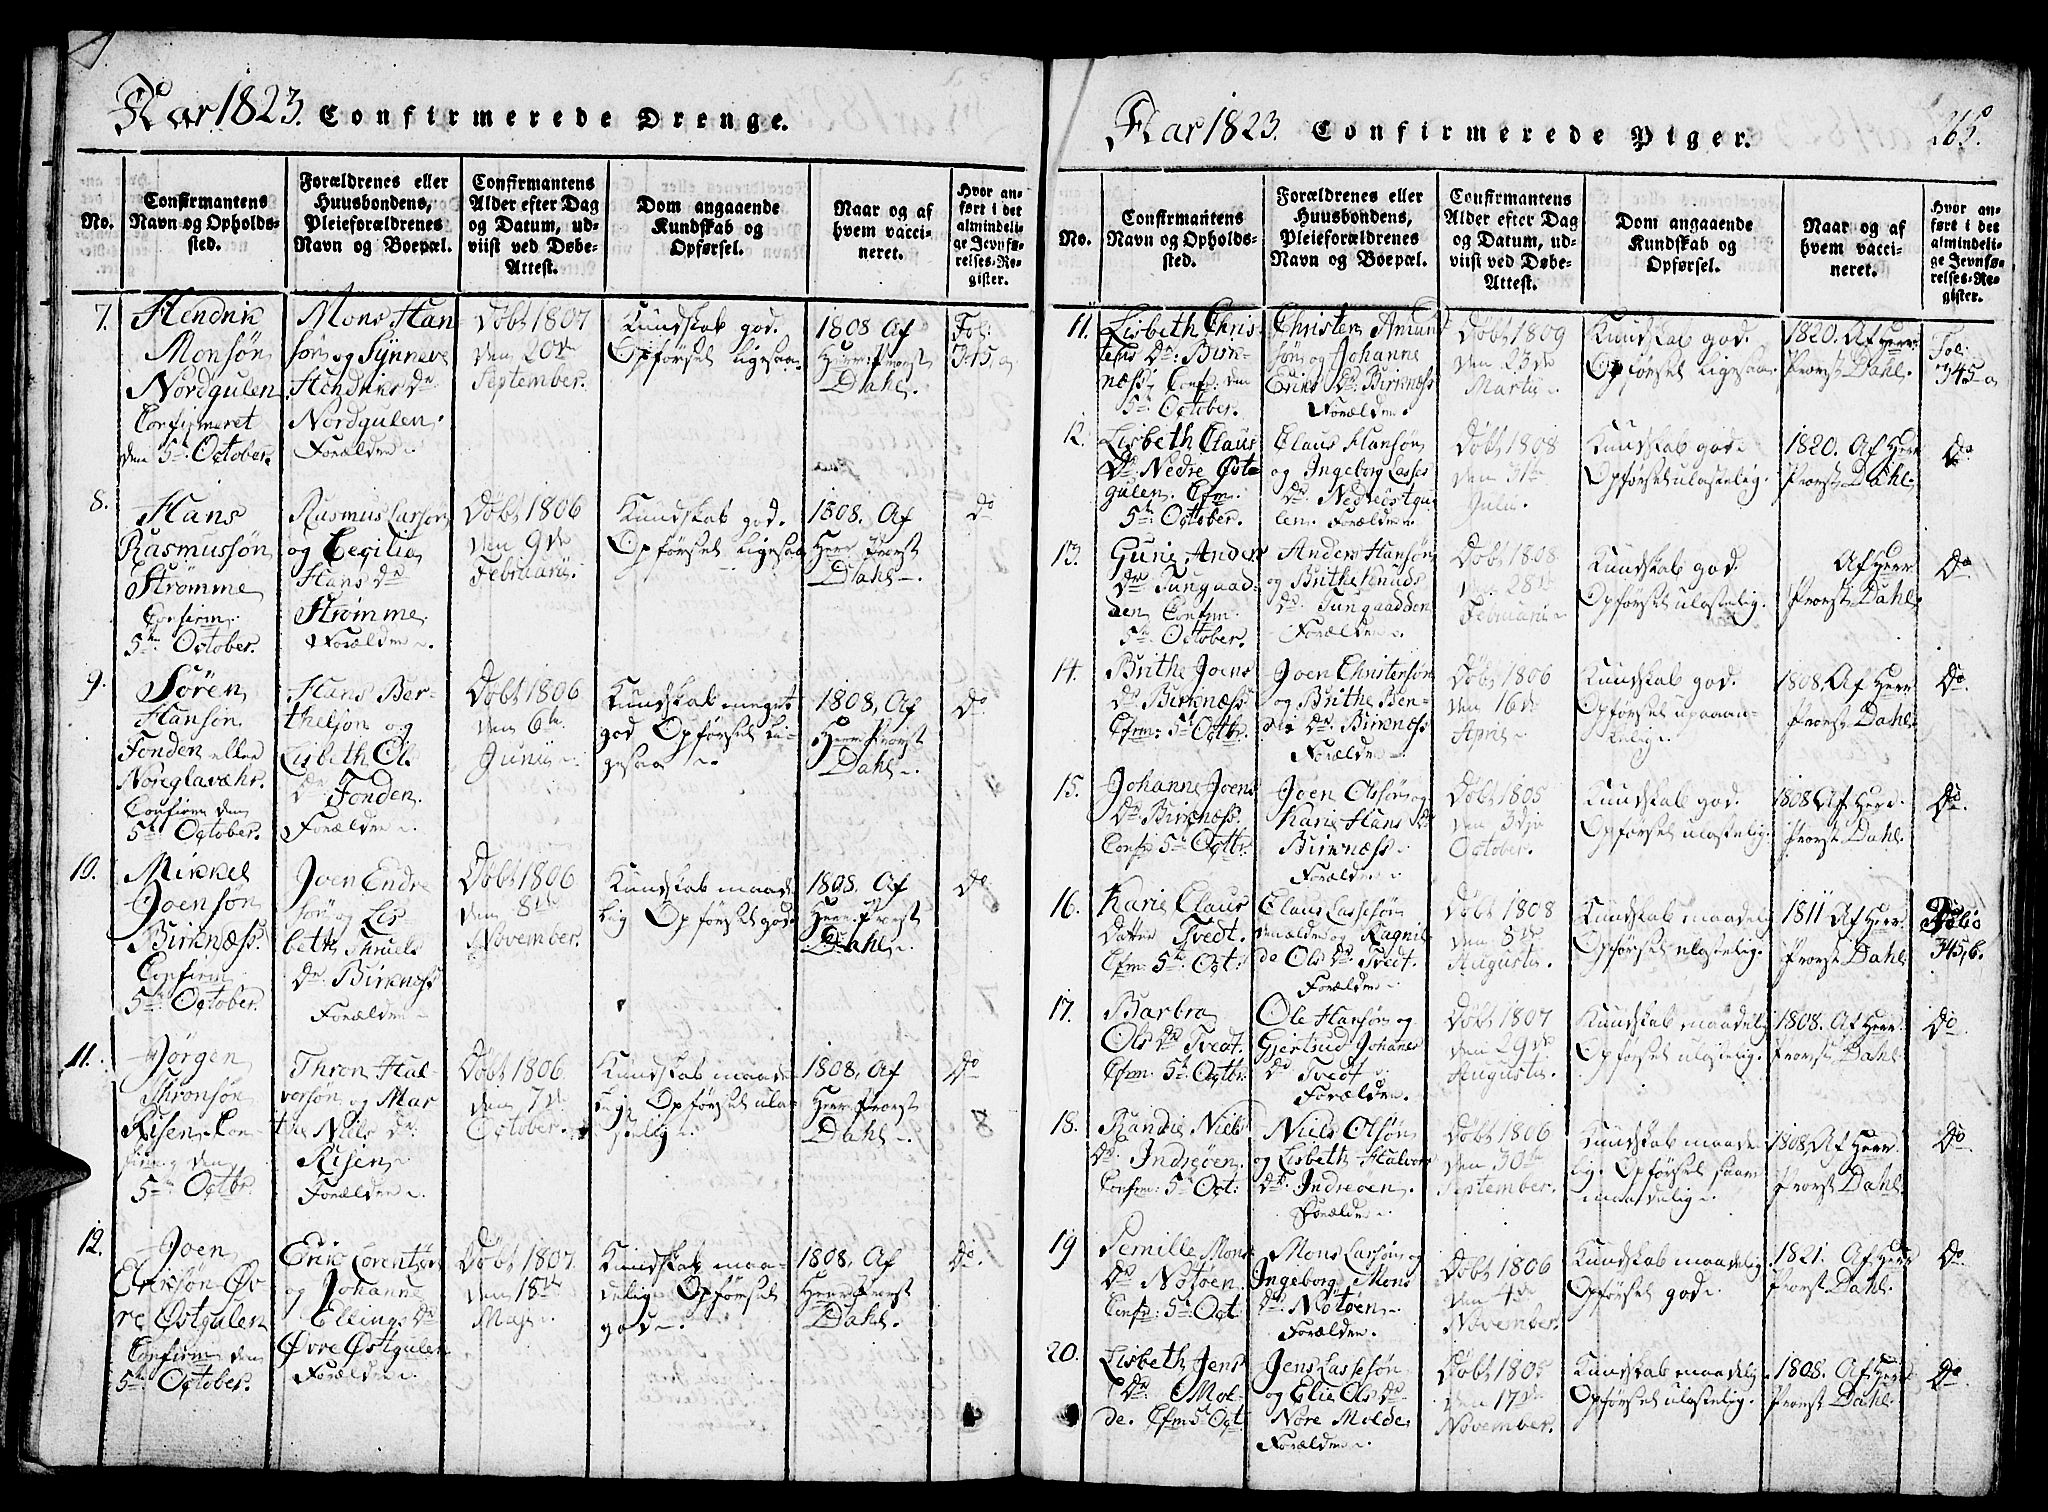 Aar 1823. Confirmerede Drenge.
No.
Confirmantens
Navn og Opholds-
sted.
Forældrenes eller
Huusbondens,
Pleieforældrenes
Navn og Boepæl.
Confirmantens
Alder efter Dag
og Datum, ud-
viist ved Døbe-
Attest.
Dom angaaende
Kundskab og
Opførsel.
Naar og af
hvem vacci-
neret.
Hvor an-
ført i det
almindeli-
ge Jevnfø-
relses-Re-
gister.
7.
Hendrik
Monsøn
Nordgulen
Confirmeret
den 5te October.
Mons Han
søn og Synneve
Hendriks Dr
Nordgulen.
Forældre
Døbt 1807
den 20de
September.
Kundskab god.
Opførsel ligesaa
1808 Af
Herr Provst
Dahl.
Fol:
345, a
8.
Hans
Rasmussøn
Strømme
Confirm:
5te October.
Rasmus Larsøn
og Cecilia
Hans Dr
Strømme.
Forældre
Døbt 1806
den 9de
Februarii.
Kundskab god.
Opførsel ligesaa
1808. Af
Herr Provst
Dahl
Do
9.
Søren
Hansøn
Fonden eller
Noreglavæhr.
Confirm den
5te October.
Hans Ber-
thelsøn og
Lisbeth Ol.
Dr Fonden.
Forældre
Døbt 1806
den 6te
Junii
Kundskab meget
god Opførsel li-
gesaa
1808. Af
Herr Provst
Dahl
Do
10.
Mikkel
Joensøn
Birknæss.
Confirm
5te October.
Joen Endre
søn og Lis-
beth Thruels
Dr Birknæss
Forældre
Døbt 1806
den 8de
November.
Kundskab maade
lig Opførsel god
1808. Af
Herr Provst
Dahl
Do
11.
Jørgen
Thronsøn
Risen Con-
firm: den
5te Octbr.
Thron Hal-
versøn og Mar
the Niels Dr
Risen
Forældre
Døbt 1806
den 7de
October.
Kundskab maade
lig Opførsel ula-
stelig
1808. Af
Herr Provst
Dahl
Do
12.
Joen
Eriksøn Øv
re Østgulen
Confirm den
5te October.
Eric Lorentsøn
og Johanne
Ellings Dr
Øvre Østgulen
Forældre
Døbt 1807
den 18de
Maji
Kundskab maa-
delig Opførsel
god
1808. Af
Herr Provst
Dahl
Do
Aar 1823. Confirmerede Piger.
265.
No.
Confirmantens
Navn og Opholds-
sted.
Forældrenes eller
Huusbondens,
Pleieforældrenes
Navn og Boepæl.
Confirmantens
Alder efter Dag
og Datum, ud-
viist ved Døbe-
Attest.
Dom angaaende
Kundskab og
Opførsel.
Naar og af
hvem vacci-
neret.
Hvor an-
ført i det
almindeli-
ge Jevnfø-
relses-Re-
gister.
11.
Lisbeth Chris-
tens Dr: Birk-
næss; Conf. den
5te October.
Christen Amund
søn og Johanne
Eriks Dr Birknæss
Forældre
Døbt 1809
den 23de
Martii
Kundskab god.
Opførsel ligesaa
1820. Af Herr
Provst Dahl.
Fol:
345 a
12.
Lisbeth Claus
Dr Nedre Øst-
gulen. Cfm.
5te October.
Claus Hansøn
og Ingeborg Lasses
Dr Nedre Østgu
len. Forældre
Døbt 1808
den 31te
Julii
Kundskab god.
Opførsel ulastelig.
1820. Af Herr
Provst Dahl.
Do
13.
Gurie Anders
Dr Tungaad-
den Confm.
5te October.
Anders Hansøn
og Brithe Knuds
Dr Tungaadden
Forældre
Døbt 1808
28de
Februarii
Kundskab god.
Opførsel ulastelig.
Af Herr
Provst Dahl.
Do
14.
Brithe Joens
Dr Birknæss
Cfm: 5te Octbr.
Joen Christensøn
og Brithe Ben-
Dr Birknæss
Forældre
Døbt 1806
den 16de
April
Kundskab god.
Opførsel upaaan-
kelig
1808. Af Herr
Provst Dahl.
Do
15.
Johanne Joens
Dr Birknæss.
Confr 5te Octbr.
Joen Olssøn og
Karie Hans Dr
Birknæss
Forældre
Døbt 1805
den 3die
October.
Kundskab god.
Opførsel ulastelig.
1808 Af Herr
Provst Dahl.
Do
16.
Karie Claus
Datter Tvedt.
Cfm: 5te Oct:
Claus Lassesøn
Forældre og Ragnil-
de Ols Dr Tvedt.
Forældre
Døbt 1808
den 8de
Augustii.
Kundskab maadelig
Opførsel ulastelig.
1811 Af Herr
Provst Dahl
Folio
345, b.
17.
Barbra
Ols Dr Tvedt.
Cfm. 5te Octbr.
Ole Hansøn og
Gjertrud Johanes
Dr Tvedt
Forældre
Døbt 1807
den 29de
Augustii.
Kundskab maadelig
Opførsel ulastelig.
1808. Af Herr
Provst Dahl.
Do
18.
Randie Niels
Dr. Indreøen.
Confm: 5te Oct:
Niels Olsøn
og Lisbeth Halvors
Dr. Indreøen.
Forældre
Døbt 1806
den 30te
September.
Kundskab maade-
lig. Opførsel saare
maadelig
1808. Af Herr
Provst Dahl.
Do
19
Pernille Mons
Dr Nøtøen.
Confr: 5te Oct
Mons Larsøn og
Ingeborg Mons
Dr. Nøtøen
Forældre.
Døbt 1806
den 4de
November.
Kundskab maadelig
Opførsel god
1821. Af Herr
Provst Dahl.
Do
20.
Lisbeth Jens
Dr. Mol-
de. Cfm 5te Oct
Jens Lassesøn
og Elie Ols Dr
Nore Molde
Forældre
Døbt 1805
den 17de
November.
Kundskab maadelig
Opførsel ulastelig.
1808. Af Herr
Provst Dahl.
Do